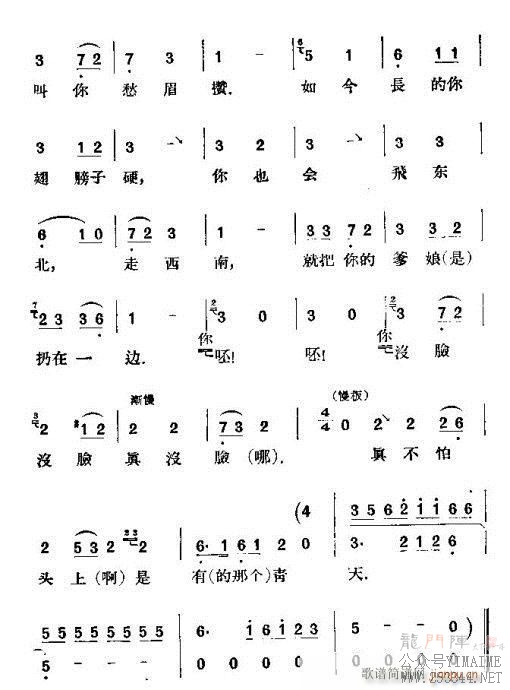 3 7 2 7 3 1 - - 6 5 1 6 1 1
叫你愁眉攒. 如今長的你
3 1 2 3 - ↘ 3 2 3 ↘ 3 3
翅膀子硬, 你也会 飛东
6 1 0 7 2 3 1 - - 3 3 7 2 3 3 2
北, 走西南, 就把你的爹娘(是)
2 3 3 6 1 - - 3 0 3 0 3 7 2
扔在一边. 你呸! 呸! 你沒臉
渐慢 (慢板)
2 1 2 2 2 7 3 - 4/4 0 2 ↘ 2 6
沒臉真沒臉(哪). 真不怕
(4 3 5 6 2 1 1 6
2 5 3 2 2 6· 1 6 1 2 0 3· 2 1 2 6
头上(啊)是 有(的那个)青 天.
5 5 5 5 5 5 5 5 5 6· 1 6 1 2 3 5 - - 0)
5 - - - 0 0 0 0 5 - - 0
龍門陣
公众号YIMAIME
歌谱简谱网